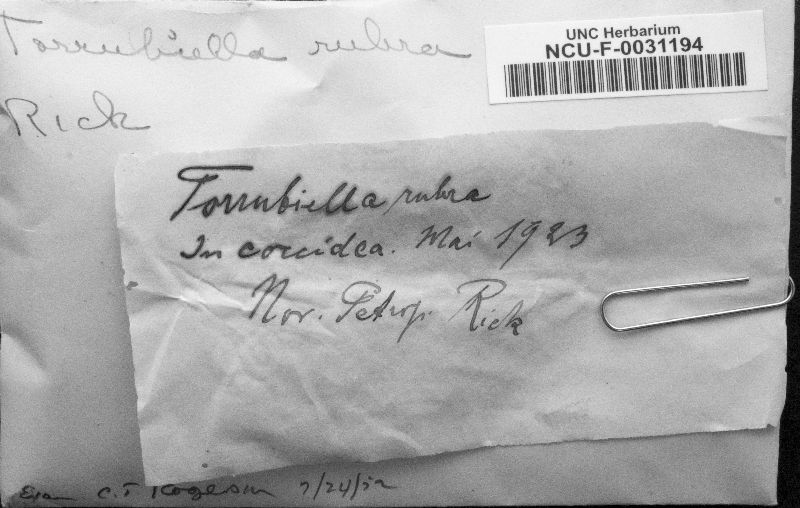 Torrubiella rubra
Rick
UNC Herbarium
NCU-F-0031194
Torrubiella rubra
In coccidea. Mai 1923
Nov. Petrop. Rick
C.T. Rogerson 7/24/52